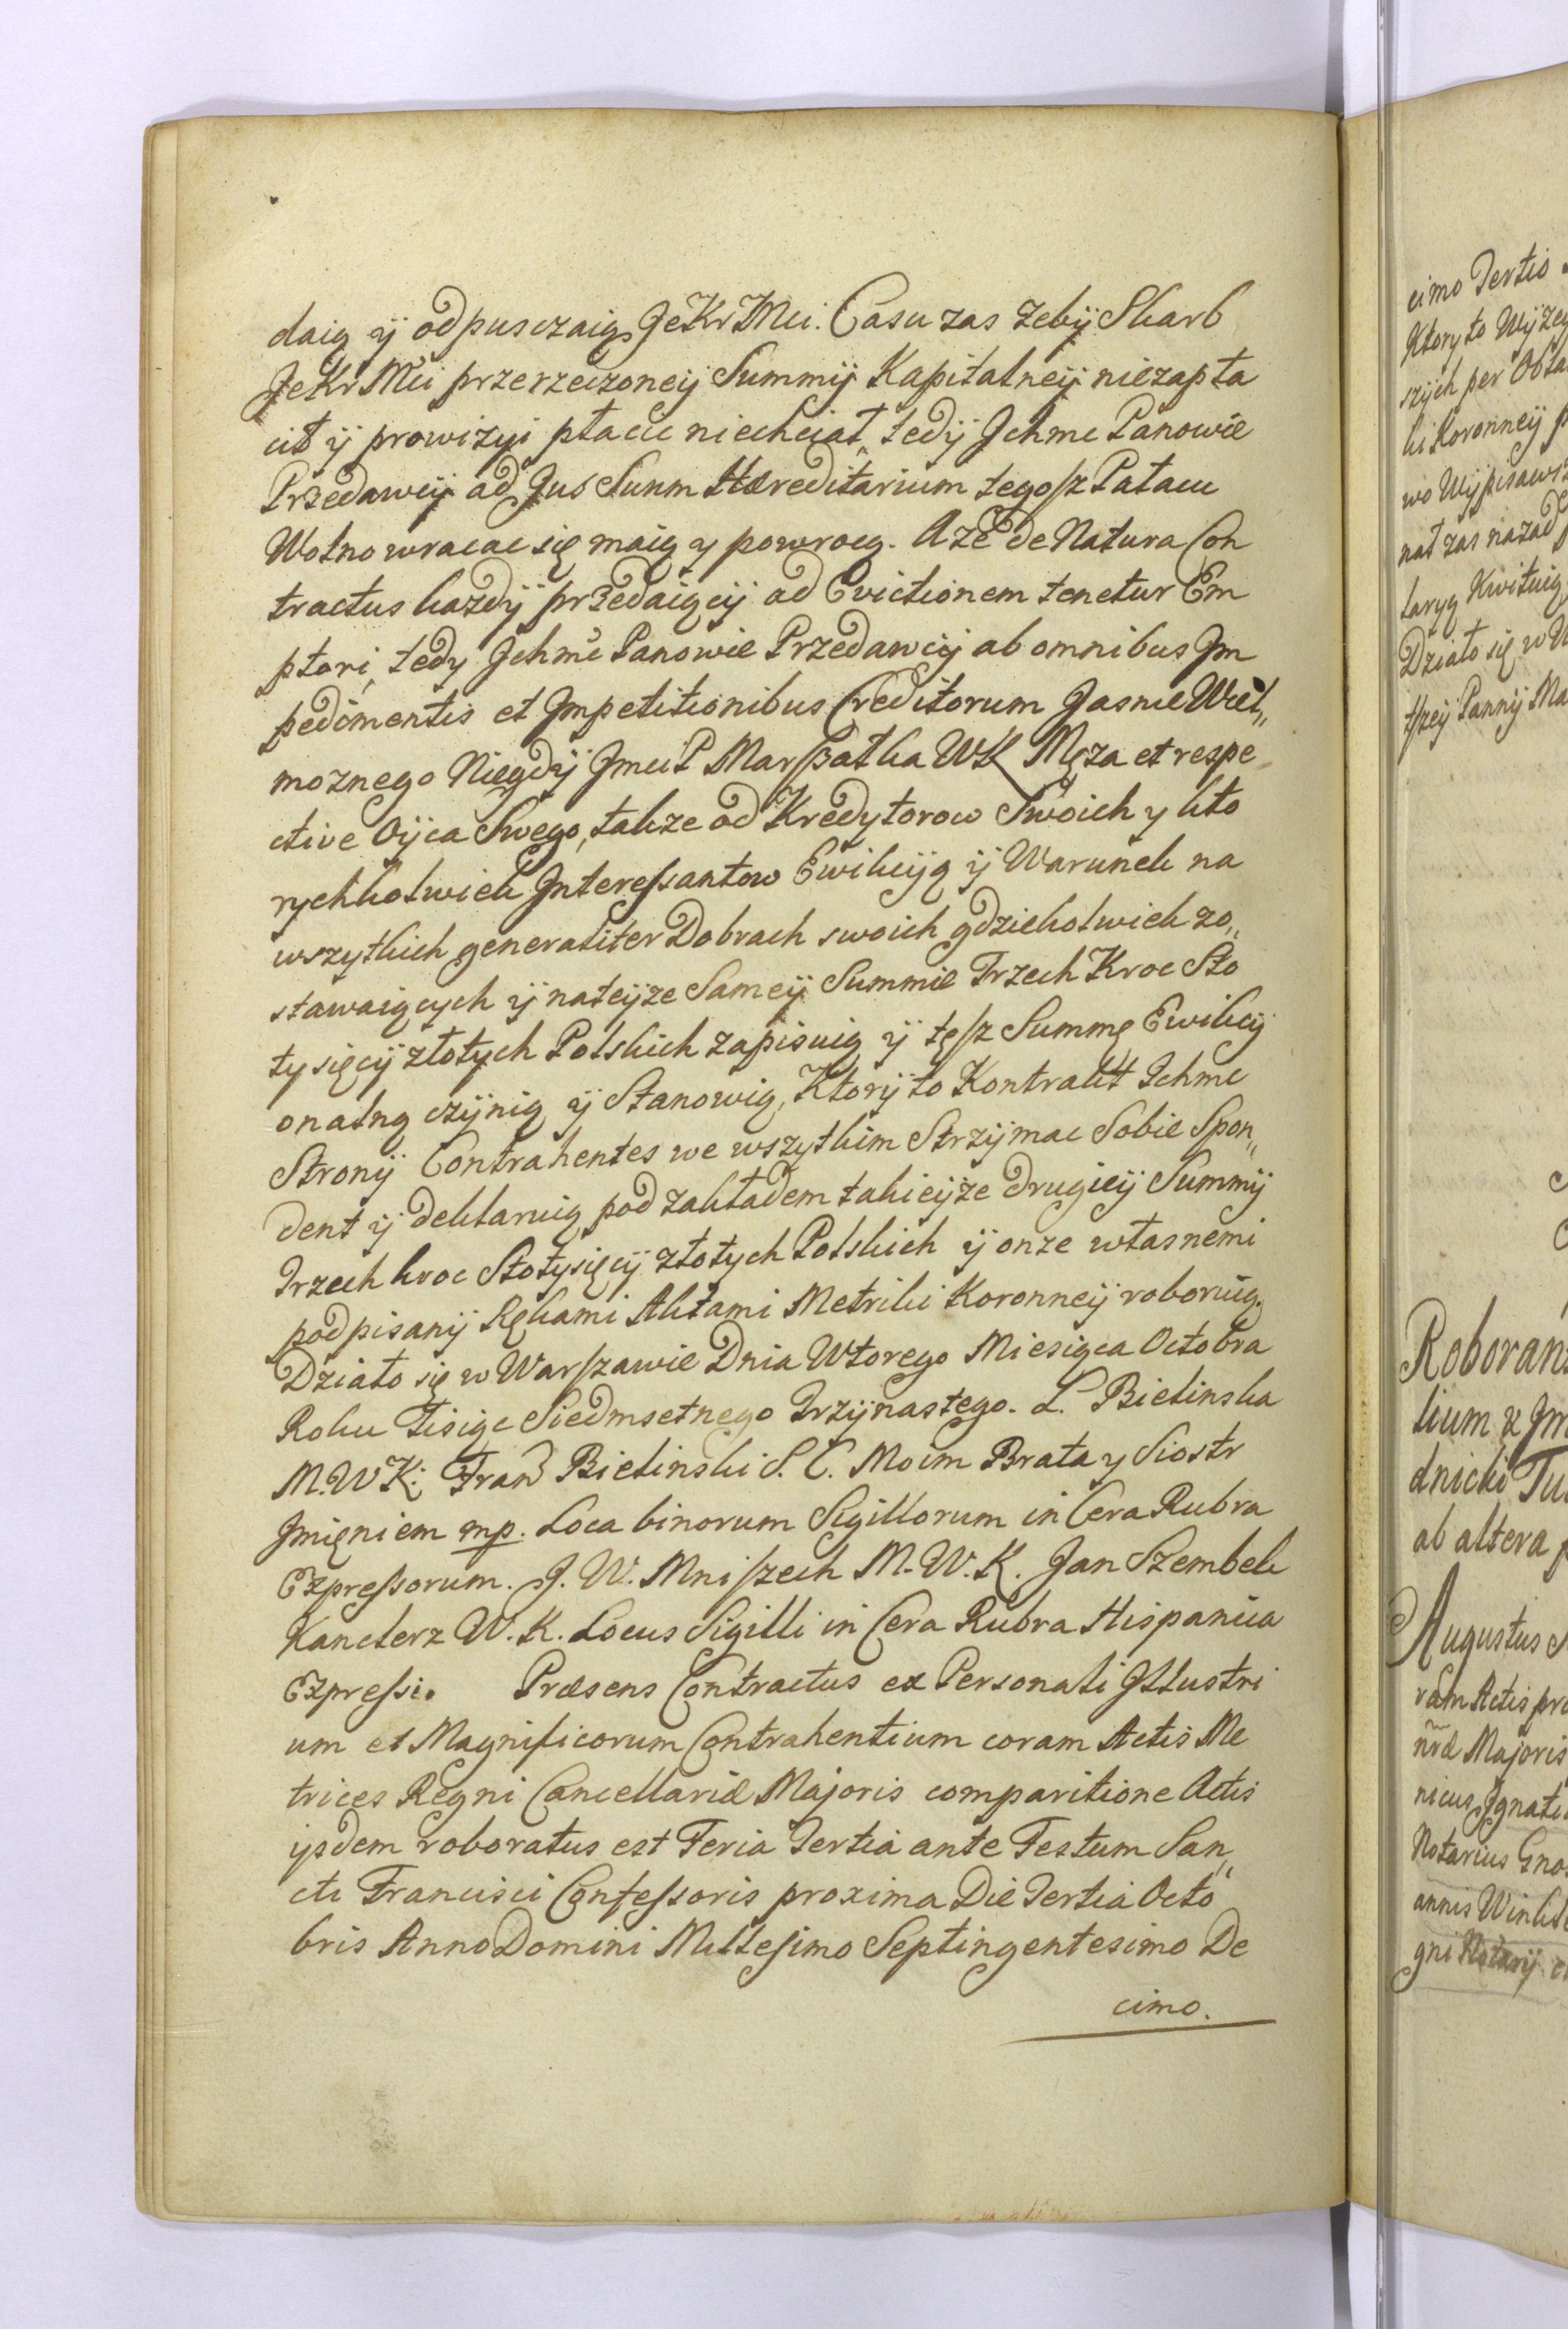 daią ÿ odpusczaią JeKrMci. Casu zas zebÿ Skarb
JeKrMci przerzeczoneÿ Summÿ Kapitalneÿ niezapła
cił ÿ prowizyi płacic niechciał, tedÿ Jchmc Panowie
Przedawcÿ ad Jus Suum Hæreditarium tegosz Pałacu
Wolno wracac się maią y powrocą. Aże de Natura Con
tractus kazdÿ przedaiącÿ ad Evictionem tenetur Em
ptori, tedy Jchmc Panowie Przedawcÿ ab omnibus Jm
pedimentis et Jmpetitionibus Creditorum Jasnie Wiel„
moznego Niegdÿ Jmci P Marszałka WK Męza et respe
ctive Oÿca Swego, takze od Kredytorow Swoich y kto
rychkolwiek Jnteressantow Ewikcÿą ÿ Warunek na
wszytkich generaliter Dobrach swoich gdziekolwiek zo„
stawaiących ÿ nateÿze Sameÿ Summie Trzech Kroc Sto
tysięcÿ złotych Polskich zapisuią ÿ tęsz Summę Ewikcÿ
onalną czÿnią ÿ Stanowią, Ktorÿ to Kontrakt Jchmc
Stronÿ Contrahentes we wszytkim Strzÿmac Sobie Spon„
dent ÿ deklaruią pod zakładem takieÿze drugieÿ Summÿ
Trzech kroc Stotysięcÿ złotych Polskich ÿ onze własnemi
podpisanÿ Rękami Aktami Metriki Koronneÿ roboruią.
Działo się w Warszawie Dnia Wtorego Miesiąca Octobra
Roku Tisiąc Siedmsetnego Trzÿnastego. L. Bielinska
M.W.K. Fran Bielinski S. C. Moim Brata y Siostr
Jmięniem mp. Loca binorum Sigillorum in Cera Rubra
Expressorum. J. W. Mniszech M.W.K. Jan Szembek
Kanclerz W.K. Locus Sigilli in Cera Rubra Hispanica
Expressi. Præsens Contractus ex Personali Jllustri
um et Magnificorum Contrahentium coram Actis Me
trices Regni Cancellariæ Majoris comparitione Actis
ijsdem roboratus est Feria Tertia ante Festum San„
cti Francisci Confessoris proxima Die Tertia Octo
bris Anno Domini Millesimo Septingentesimo De
cimo.
cimo Tertio
Ktory to Wÿzeÿ
szÿch per Obla
ki Koronneÿ p
wo Wÿpisawsz
nał zas nazad
taryą Kwituią
Działo się w W
tszeÿ Pannÿ Ma
Roboran
lium & Jm
dnicki Tu
ab altera p
Augustus
ram Actis pr
nræ Majoris
nicus Jgnati
Notarius Gno
annis Winkl
gni Notarÿ